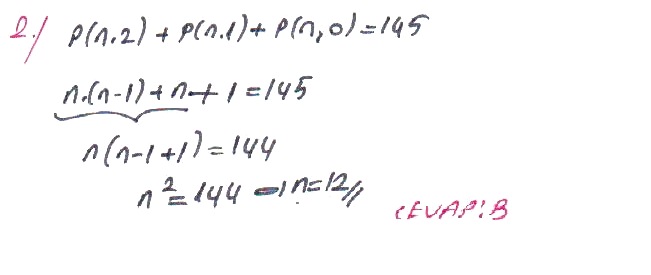 2./ P(n,2) + P(n,1) + P(n,0) = 145
n.(n-1) + n + 1 = 145
n(n-1+1) = 144
n² = 144 → n = 12//
CEVAP: B